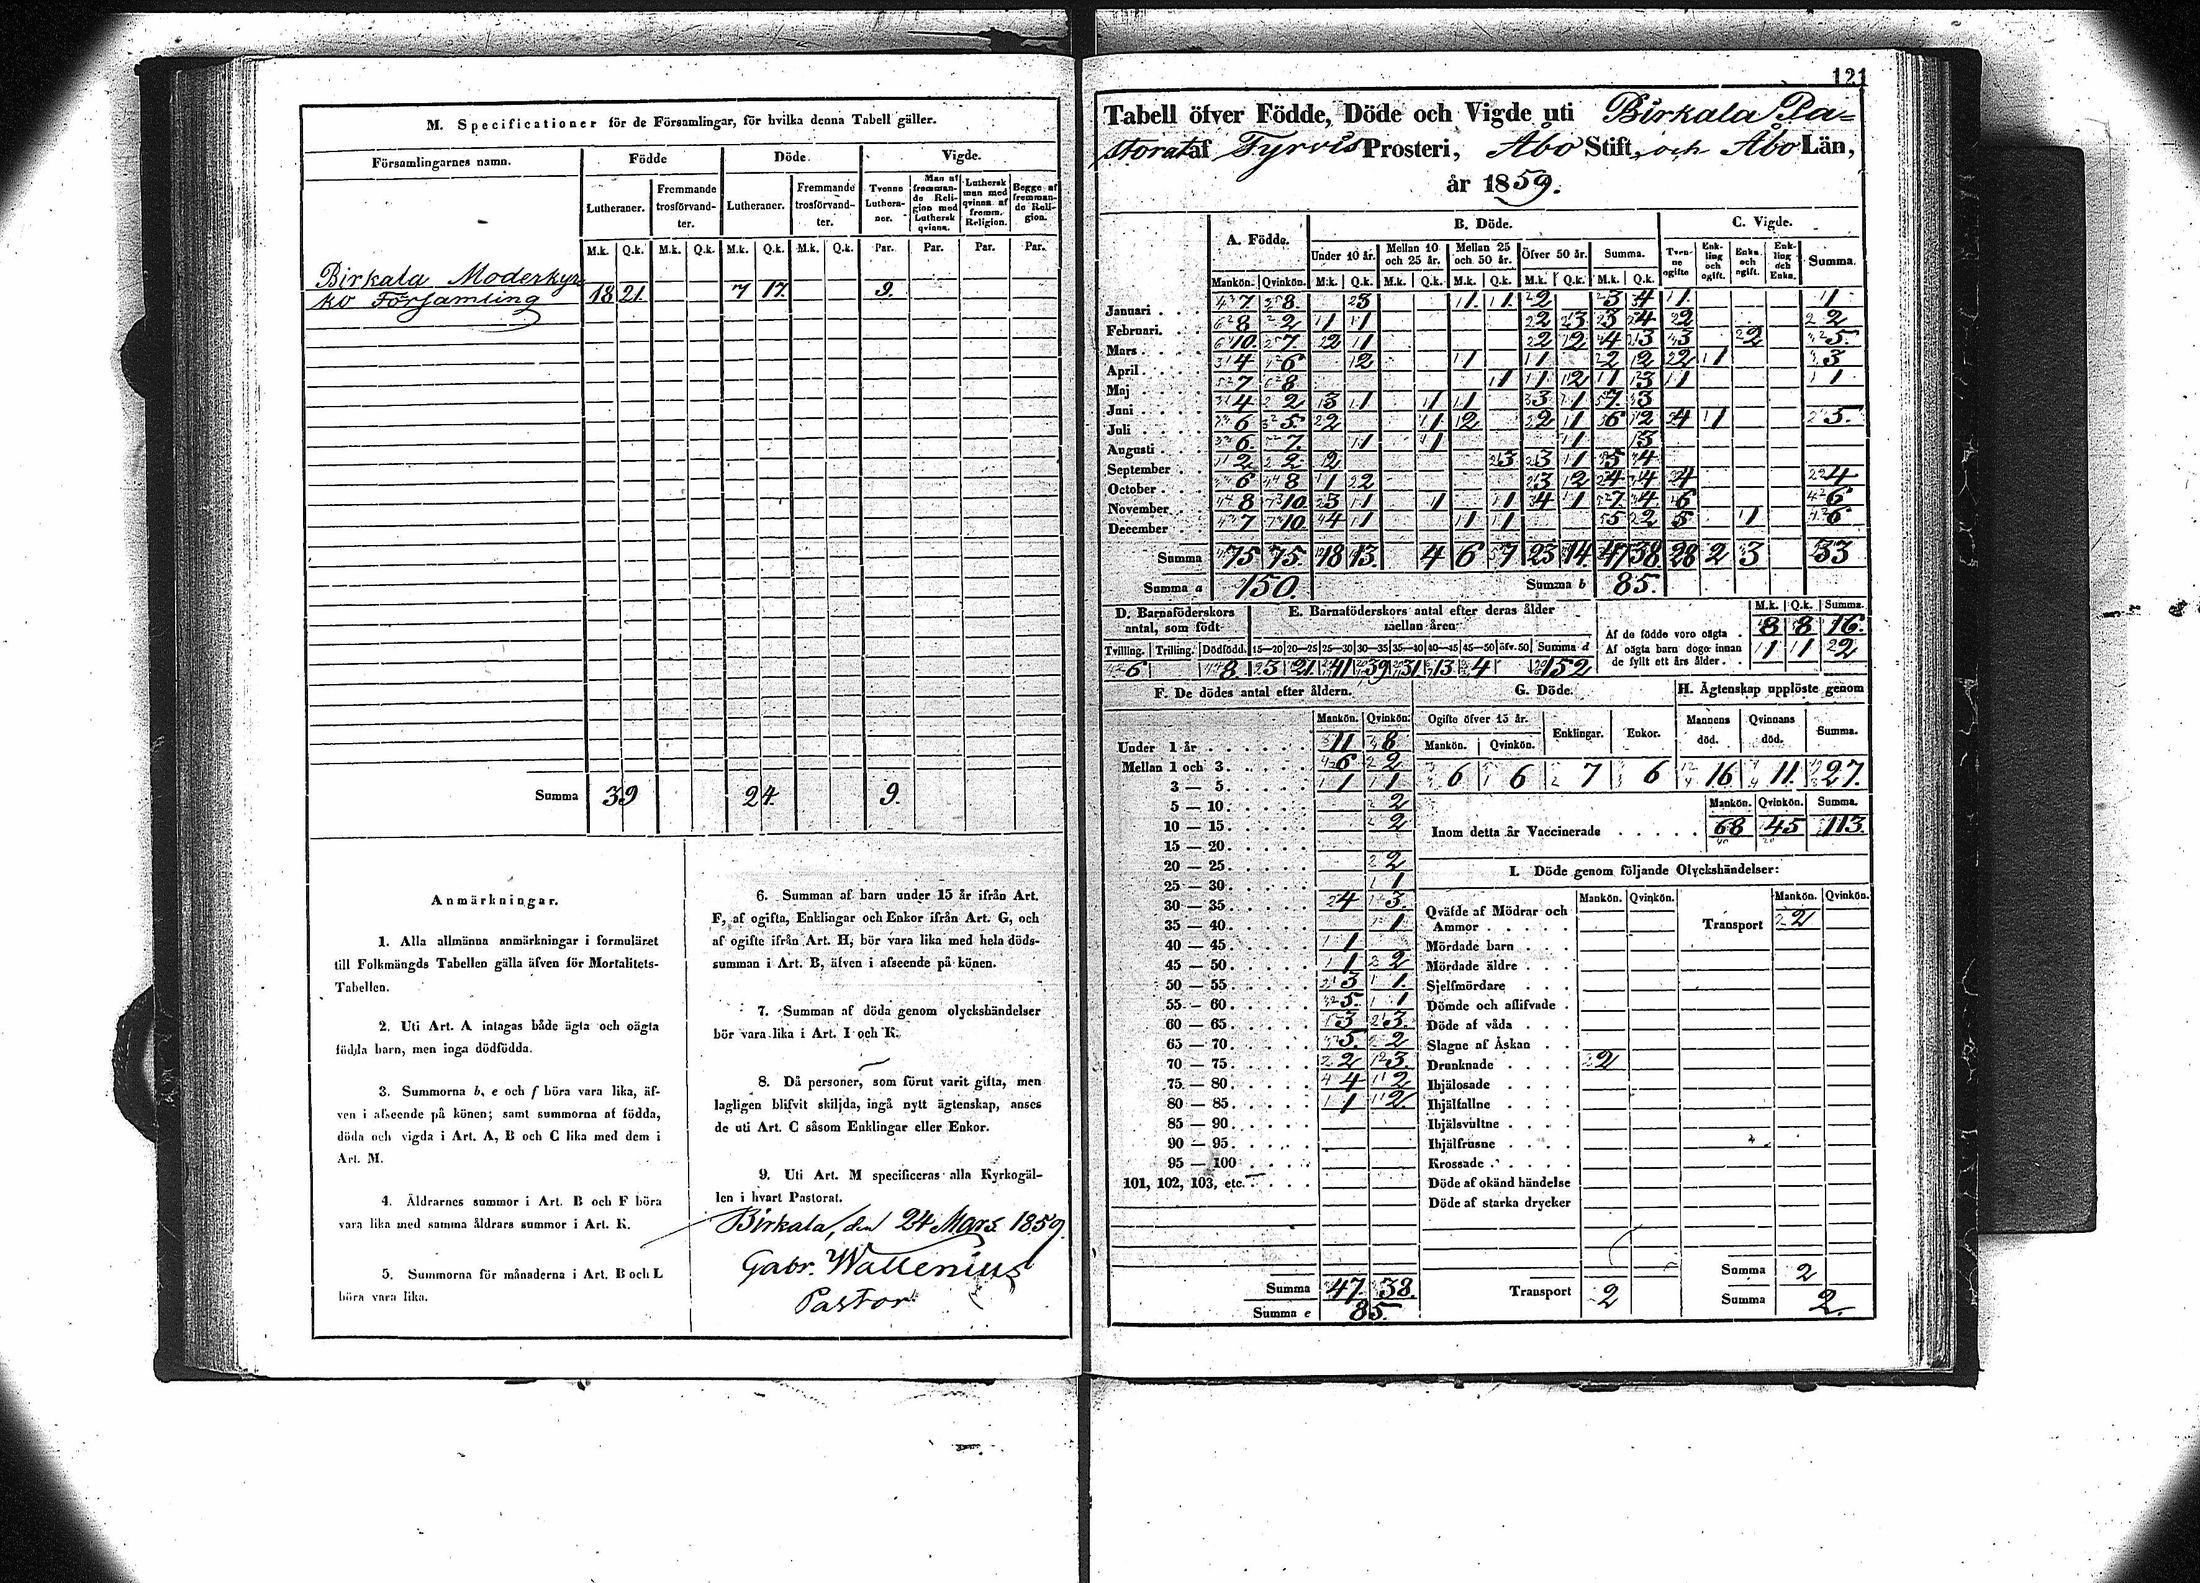 M. Specificationer för de Församlingar, för hvilka denna Tabell gäller.
Församlingarnes namn. Födde Döde. Vigde.
Lutheraner. Fremmande trosförvandter. Lutheraner. Fremmande trosförvandter. Tvenne Lutheraner. Man af fremmande Religion med Luthersk qvinna. Luthersk man med qvinna af fremm. Religion. Begge af fremmande Religion.
M.k. Q.k. M.k. Q.k. M.k. Q.k. M.k. Q.k. Par. Par. Par. Par.
Birkala Moderkyr
ko Församling 18 21. 7 17. 9.
Summa 39 24. 9.
Anmärkningar.
1. Alla allmänna anmärkningar i formuläret
till Folkmängds Tabellen gälla äfven för Mortalitets-
Tabellen.
2. Uti Art. A intagas både ägta och oägta
födda barn, men inga dödfödda.
3. Summorna b, e och f böra vara lika, äf-
ven i afseende på könen; samt summorna af födda,
döda och vigda i Art. A, B och C lika med dem i
Art. M.
4. Åldrarnes summor i Art. B och F böra
vara lika med samma åldrars summor i Art. K.
5. Summorna för månaderna i Art. B och L
böra vara lika.
6. Summan af barn under 15 år ifrån Art.
F, af ogifta, Enklingar och Enkor ifrån Art. G, och
af ogifte ifrån Art. H, bör vara lika med hela döds-
summan i Art. B, äfven i afseende på könen.
7. Summan af döda genom olyckshändelser
bör vara lika i Art. I och K.
8. Då personer, som förut varit gifta, men
lagligen blifvit skiljda, ingå nytt ägtenskap, anses
de uti Art. C såsom Enklingar eller Enkor.
9. Uti Art. M specificeras alla Kyrkogäl-
len i hvart Pastorat.
Birkala, den 24 Mars 1859.
Gabr. Wallenius
Pastor.
121
Tabell öfver Födde, Döde och Vigde uti Birkala Pa-
storat af Tyrvis Prosteri, Åbo Stift, och Åbo Län,
år 1859.
A. Födde. B. Döde. C. Vigde.
Under 10 år. Mellan 10 och 25 år. Mellan 25 och 50 år. Öfver 50 år. Summa. Tvenne ogifte Enkling och ogift. Enka och ogift. Enkling och Enka. Summa.
Mankön. Qvinkön. M.k. Q.k. M.k. Q.k. M.k. Q.k. M.k. Q.k. M.k. Q.k.
Januari 7 8. 3 1. 1. 2 3 4 1. 1
Februari. 8 2 1 1 2 3 3 4 2 2
Mars 10. 7. 2 1 2 2 4 3 3 2 5.
April 4 6 2 1 1 2 2 2 1 3
Maj 7 8 1 1 2 1 3 1 1
Juni 4 2 3 1 1 1 3 1 7. 3
Juli 6 5. 2 1 2 2 1 6 2 4 1 5.
Augusti 6. 7. 1 1 1 3
September 2 2 2 3 3 1 5 4
October 6 8 1 2 3 2 4 4 4 4
November 8 10. 3 1 1 1 4 1 7. 4. 6 6
December 7 10. 4 1 1 1 5 2 5 1 6
Summa 75 75. 18 13. 4 6 7 23 14. 47 38. 28 2 3 33
Summa a 150. Summa b 85.
D. Barnaföderskors antal, som födt
E. Barnaföderskors antal efter deras ålder mellan åren
M.k. Q.k. Summa.
Af de födde voro oägta 8 8 16.
Af oägta barn dogo innan de fyllt ett års ålder. 1 1 2
Tvilling. Trilling. Dödfödd. 15—20 20—25 25—30 30—35 35—40 40—45 45—50 öfv. 50 Summa d
6 8 3 21. 41 39 31 13 4 152
F. De dödes antal efter åldern. G. Döde. H. Ägtenskap upplöste genom
Mankön. Qvinkön. Ogifte öfver 15 år. Enklingar. Enkor. Mannens död. Qvinnans död. Summa.
Mankön. Qvinkön.
6 6 7 6 16 11. 27.
Under 1 år 11 8
Mellan 1 och 3. 6 2
3 — 5. 1 1
5 — 10. 2
10 — 15. 2
15 — 20.
20 — 25. 2
25 — 30. 1
30 — 35. 4 3.
35 — 40. 1
40 — 45. 1
45 — 50. 1 2
50 — 55. 3 1.
55 — 60. 5. 1
60 — 65. 3 3.
65 — 70. 5. 2
70 — 75. 2 3.
75 — 80. 4 2
80 — 85. 1 2.
85 — 90.
90 — 95.
95 — 100
101, 102, 103, etc.
Summa 47. 38.
Summa e 85.
Mankön. Qvinkön. Summa.
Inom detta år Vaccinerade 68 45 113.
I. Döde genom följande Olyckshändelser:
Mankön. Qvinkön. Mankön. Qvinkön.
Qväfde af Mödrar och Ammor Transport 2
Mördade barn
Mördade äldre
Sjelfmördare
Dömde och aflifvade
Döde af våda
Slagne af Åskan
Drunknade 2
Ihjälosade
Ihjälfallne
Ihjälsvultne
Ihjälfrusne
Krossade
Döde af okänd händelse
Döde af starka drycker
Summa 2
Transport 2 Summa 2.